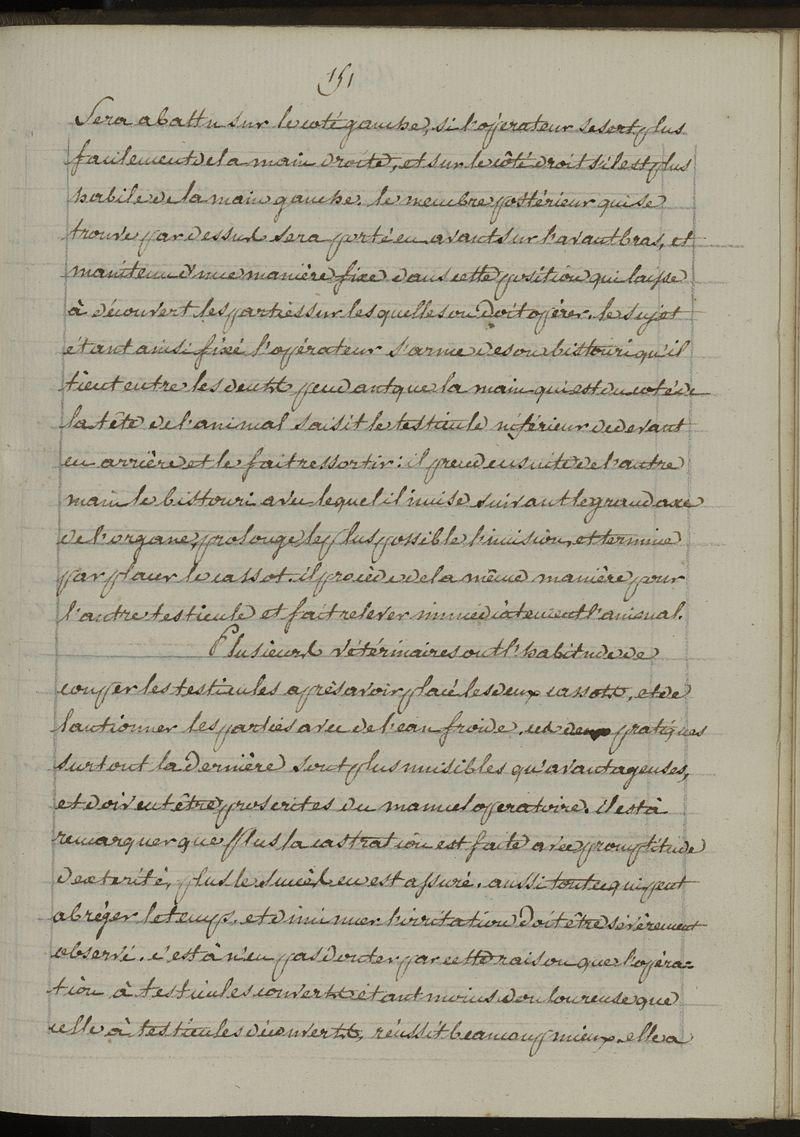 151
Sera abattu sur le coté gauche, si l'opérateur se sert plus
facilement de la main droite, et sur le côté droit s'il est plus
habile de la main gauche. le membre postérieur qui se
trouve par dessus sera porté en avant sur l'avant bras, et
maintenu d'une manière fixe dans cette position qui laisse
à découvert les parties sur lesquelles on doit opérer. le sujet
étant ainsi fixé l'opérateur s'arme de son bistouri qu'il
tient entre les dents pendant que la main qui est du coté de
la tête de l'animal saisit le testicule inférieur de devant
en arrière et le fait ressortir: il prend ensuite de l'autre
main le bistouri avec lequel il incise suivant le grand axe
de l'organe, prolonge le plus possible l'incision, et termine
par placer le cassot. il procède de la même manière pour
l'autre testicule et fait relever immédiatement l'animal.
Plusieurs vétérinaires ont l'habitude de
couper les testicules après avoir placé les deux cassots, et de
lautionner les parties avec de l'eau froide. ces deux pratiques
surtout la dernière sont plus nuisibles qu'avantageuses,
et doivent être proscrites du manuel operatoire. il est à
remarquer que plus la castration est faite avec promptitude
dexterité, plus le succès en est assuré. aussi tout ce qui peut
abréger le temps, et diminuer l'irritation doit être sévèrement
observé. c'est à n'en pas douter par cette raison que l'opéra-
tion à testicules couverts étant moins douloureuse que
celle à testicules découverts, réussit beaucoup mieux. elle a